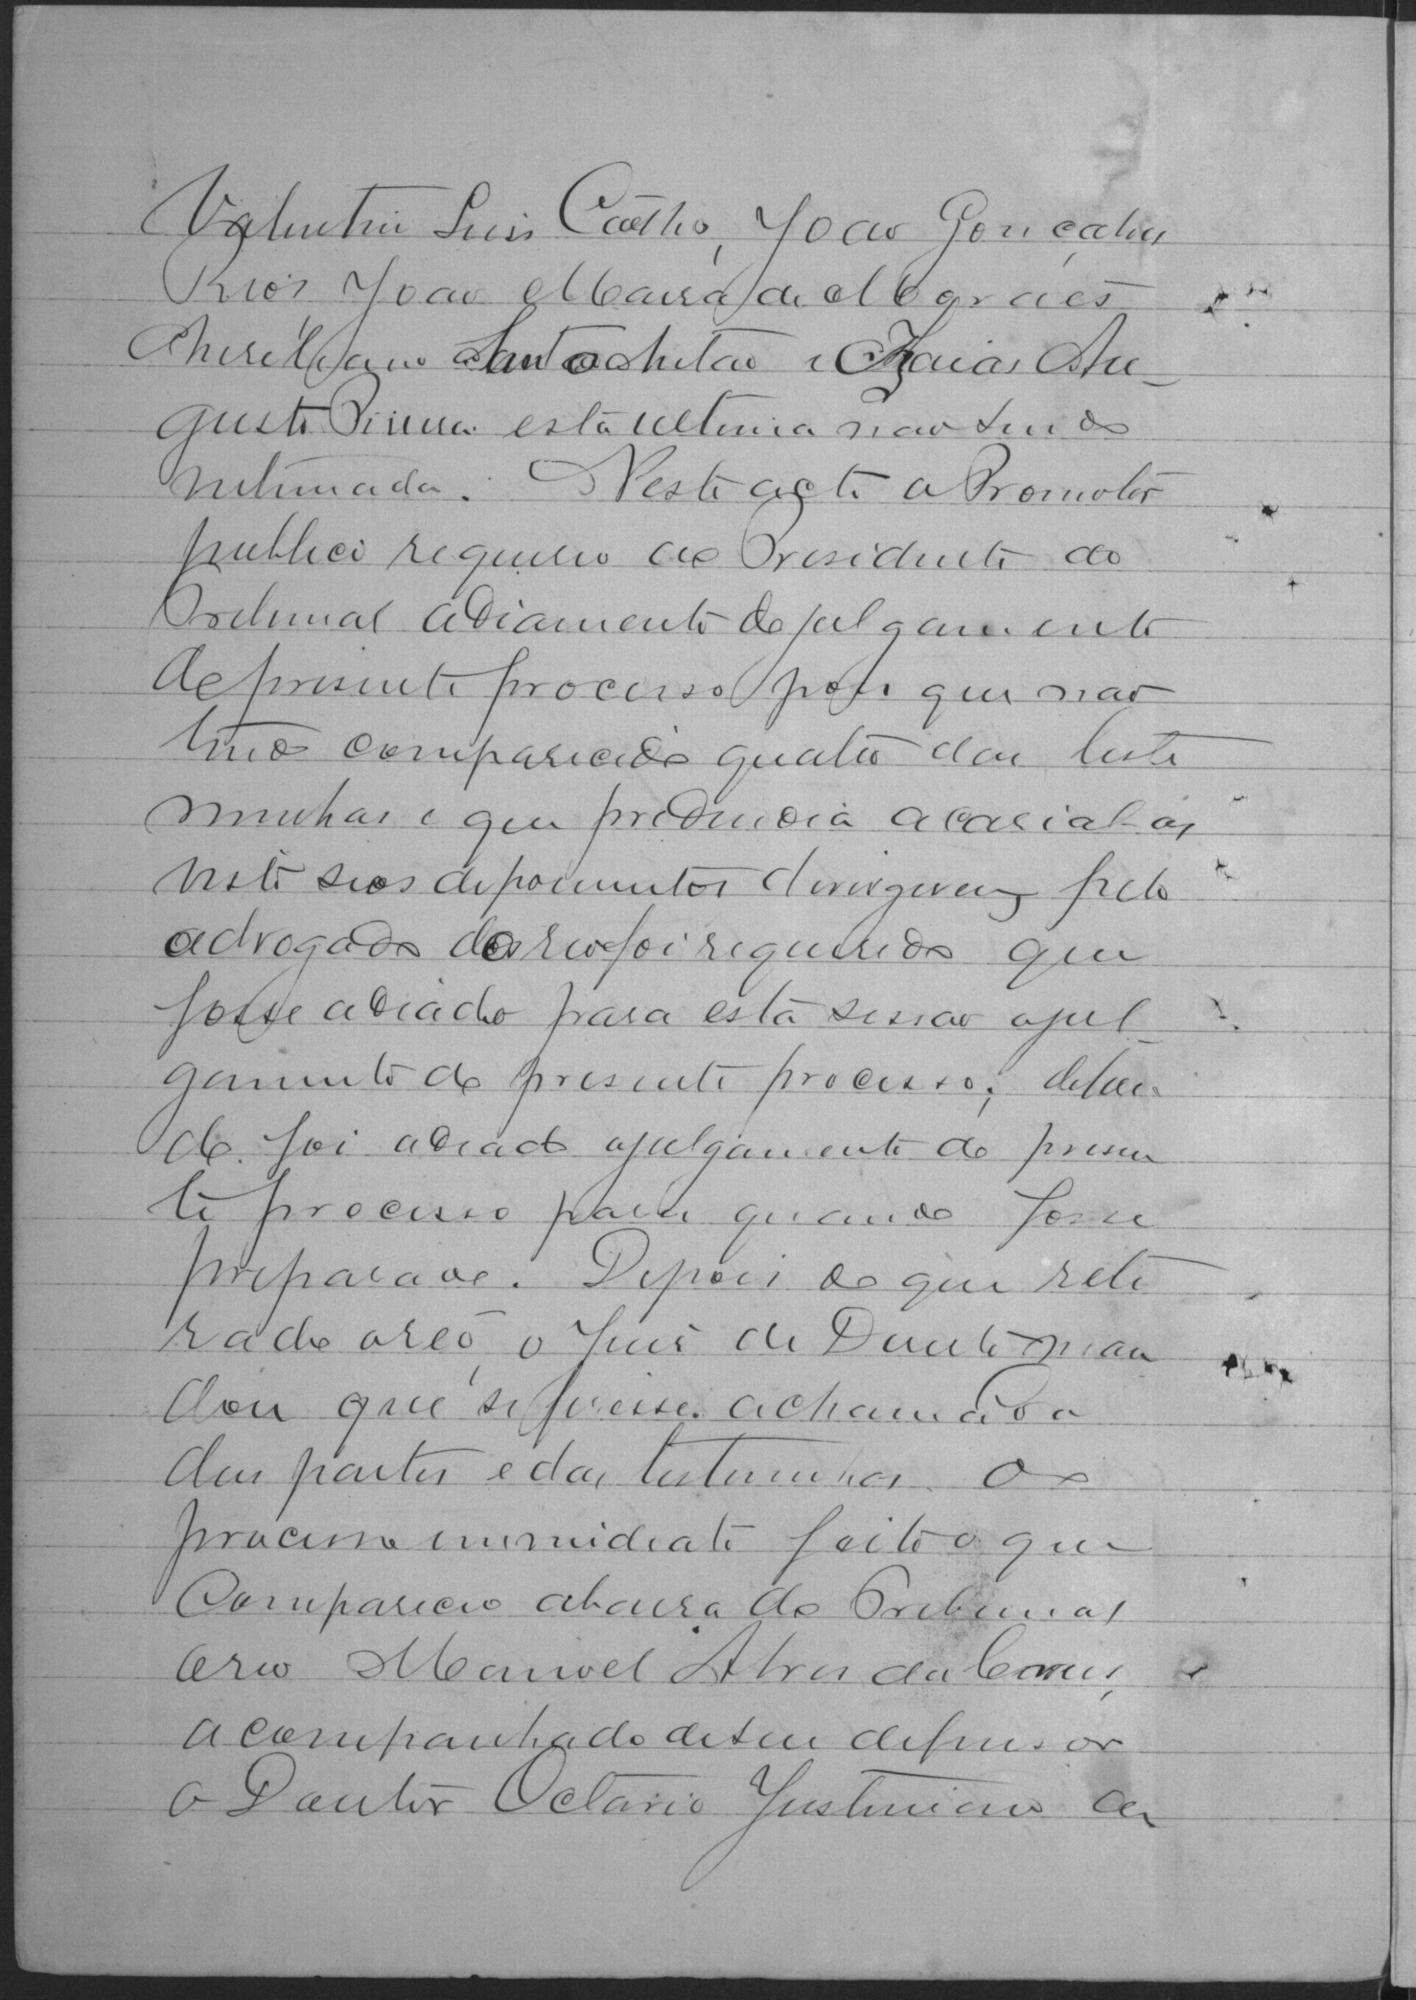 Valentin Luis Coêlho, Joao Gonçalves
Rios Joao Maria de Moraes
Aureliano Santo e Izaias Au-
gusto esta ultima nao sendo
netimada. Neste acto o Promotor
publico requereo ao Presidente do
Tribunal adiamento do julgamento
do presente processo pois que nao
tendo comparecido quatro das teste
munhas e que acarial-as
neste seos depoimentos pelo
advogado do reo foi requerido que
fosse adiado para esta sessao o jul-
gamento do presente processo;
do foi adiado o julgamento do presen
te processo para quando fosse
preparado. Depois do que reti
rado o reo, o Juis de Direito man
dou que se fisesse a chamada
das partes e das testemunhas do
processo immidiato feito o que
Compareceo a barra do Tribunal
o reo Manoel Alves da Cruz,
acompanhado de seu defensor
o Doutor Octavio Justiniano da